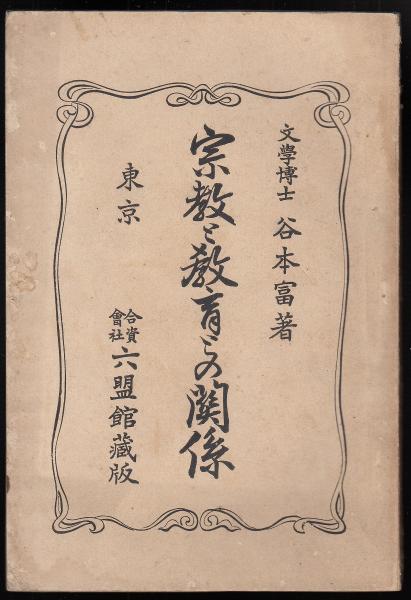 文學博士 谷本富著
宗教と教育との関係
東京
合資會社 六盟館藏版